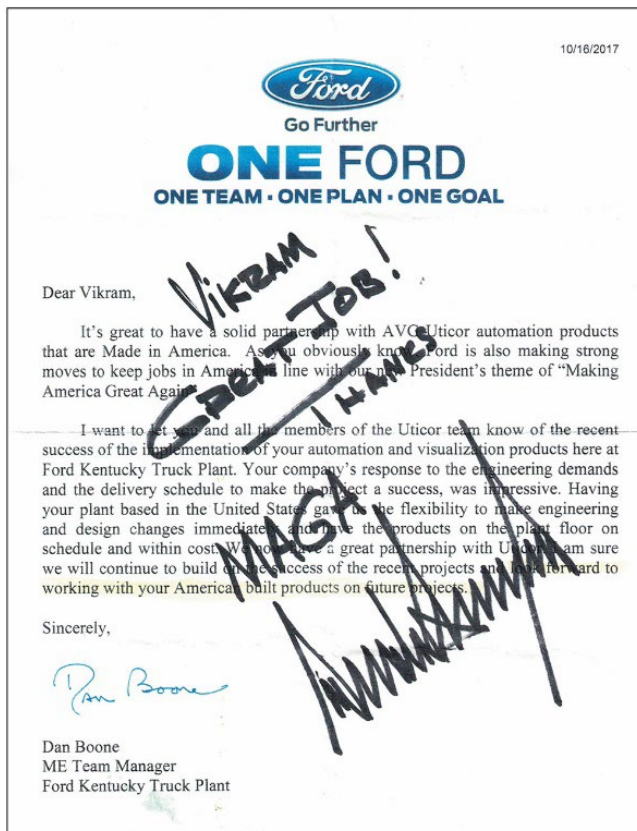 10/16/2017
Ford
Go Further
ONE FORD
ONE TEAM · ONE PLAN · ONE GOAL
VIKRAM
GREAT JOB!
THANKS
MAGA
Dear Vikram,
It's great to have a solid partnership with AVG Uticor automation products
that are Made in America. As you obviously know, Ford is also making strong
moves to keep jobs in America in line with our new President's theme of “Making
America Great Again”
I want to let you and all the members of the Uticor team know of the recent
success of the implementation of your automation and visualization products here at
Ford Kentucky Truck Plant. Your company's response to the engineering demands
and the delivery schedule to make the project a success, was impressive. Having
your plant based in the United States gave us the flexibility to make engineering
and design changes immediately and have the products on the plant floor on
schedule and within cost. We now have a great partnership with Uticor. I am sure
we will continue to build on the success of the recent projects and look forward to
working with your American built products on future projects.
Sincerely,
Dan Boone
Dan Boone
ME Team Manager
Ford Kentucky Truck Plant